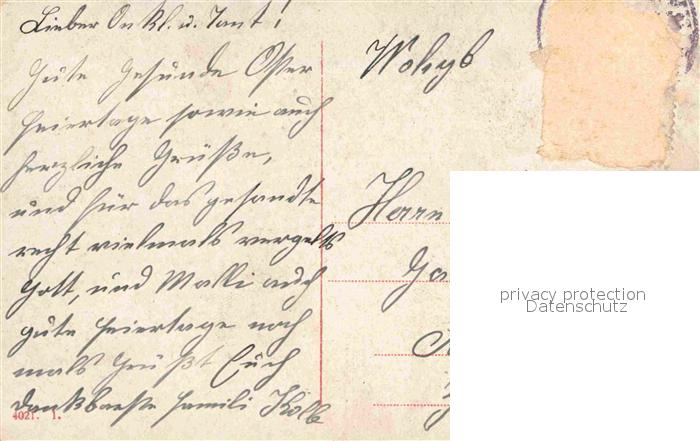 Lieber Onkl. u. Tant!
Gute Gesunde Oster
feiertage sowie auch
herzliche Grüße,
und für das gesandte
recht vielmals vergelts
Gott, und Malli auch
gute feiertage noch
mals Grüßt Euch
dankbarste Famili Kolb
4021. 1.
Wohlgb
Herrn
privacy protection
Datenschutz